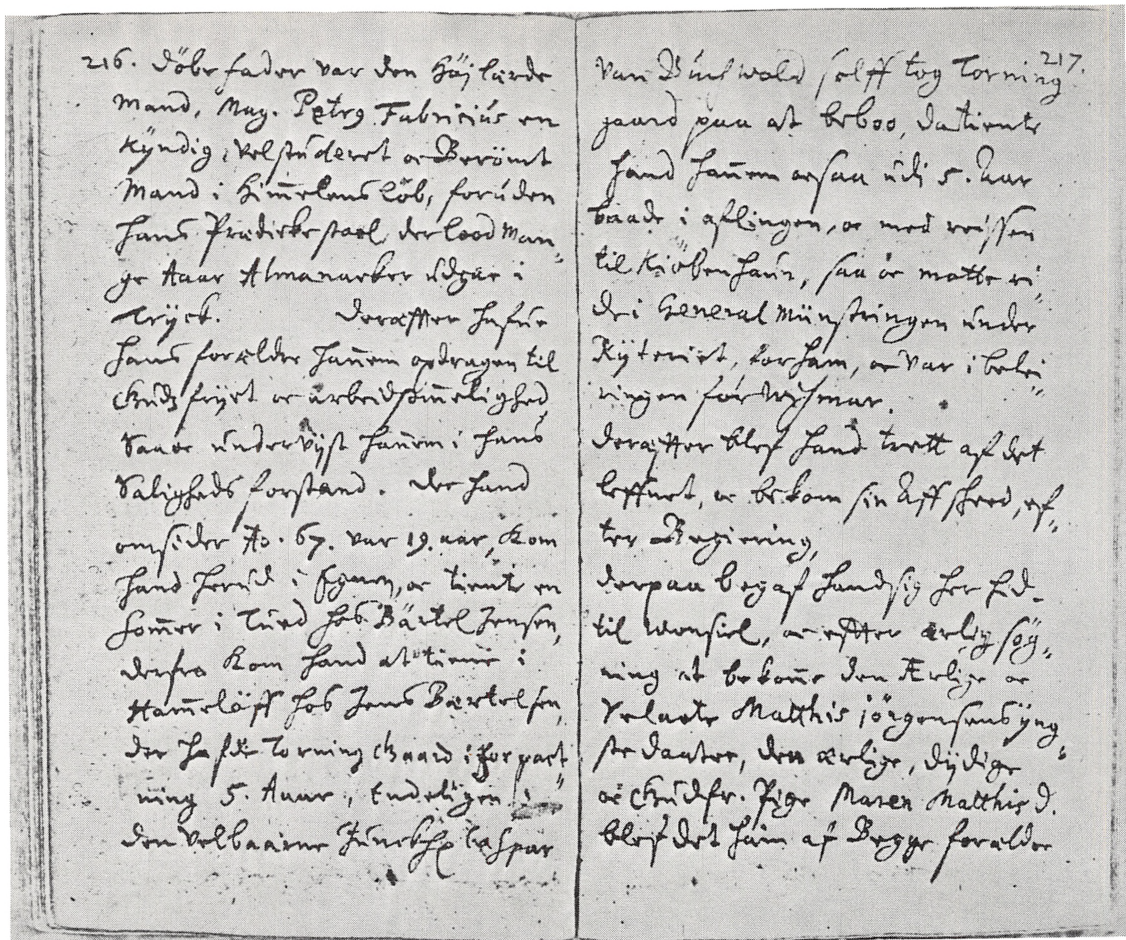 216. Döbefader var den Höjlærde
Mand, Mag. Petrus Fabricius en
Kÿndig, velstuderet oc Berömt
Mand i Himmelens Löb, foruden
hans Prædickestoel, der lood Man„
ge Aaar Almanacker udgaa i
Trÿck. Deræffter hafue
hans forældre hannem opdragen til
Gudz frÿct oc arbeidsommelighed,
Saa oc undervÿst hannem i hans
Saligheds forstand. Der hand
omsider Ao. 67. var 19. aar, Kom
hand herud i Egnen, oc tiente en
Sommer i hos Bärtel Jensen,
derfra Kom hand at tienne i
Hammelöff hos Jens Bærtelsen,
der hafde Torning Gaard i forpact„
ning 5. Aaar, Endeligen
den velbaarne Juncker Caspar
217.
van Buchwald selff tog Torning
gaard paa at beboo, da tiente
hand hannem ocsaa udi 5. Aar
baade i aflingen, oc med reissen
til Kiöbenhaun, saa oc motte ri„
de i General Münstringen under
Rÿteriet, for ham, oc var i belei„
ringen for Wißmar.
Deræffter blef hand trett af det
leffnet, oc bekom sin Affscheed, ef„
ter Begiering,
derpaa begaf hand sig her hid
til Wonsiel, oc effter ærlig sög„
ning at bekomme den Ærlige oc
Velacte Matthis jörgensens ÿng„
ste daatter, den ærlige, dÿdige
oc Gudfr. Pige Maren Matthis D.
blef det ham af Begge forældre